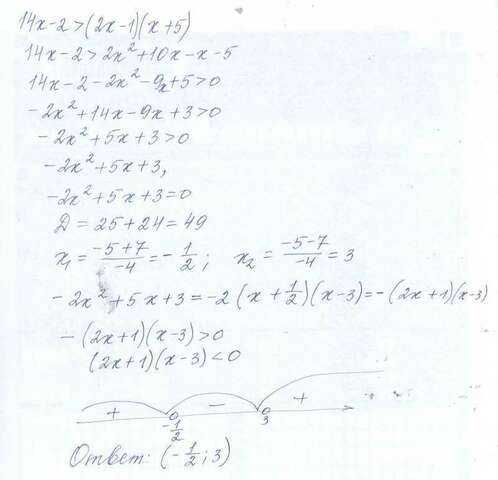 14x-2>(2x-1)(x+5)
14x-2>2x²+10x-x-5
14x-2-2x²-9x+5>0
-2x²+14x-9x+3>0
-2x²+5x+3>0
-2x²+5x+3,
-2x²+5x+3=0
D=25+24=49
x₁=(-5+7)/(-4)=-1/2; x₂=(-5-7)/(-4)=3
-2x²+5x+3=-2(x+1/2)(x-3)=-(2x+1)(x-3)
-(2x+1)(x-3)>0
(2x+1)(x-3)<0
+ - +
-1/2 3
Ответ: (-1/2; 3)